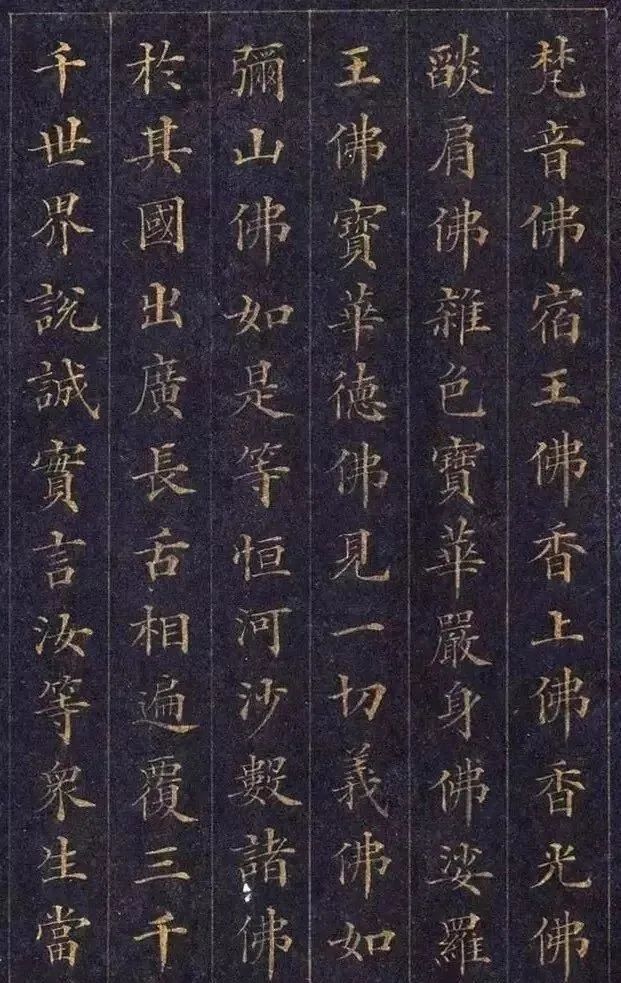 梵音佛宿王佛香上佛香光佛
燄肩佛雜色寶華嚴身佛娑羅
王佛寶華德佛見一切義佛如
彌山佛如是等恒河沙數諸佛
於其國出廣長舌相遍覆三千
千世界說誠實言汝等衆生當